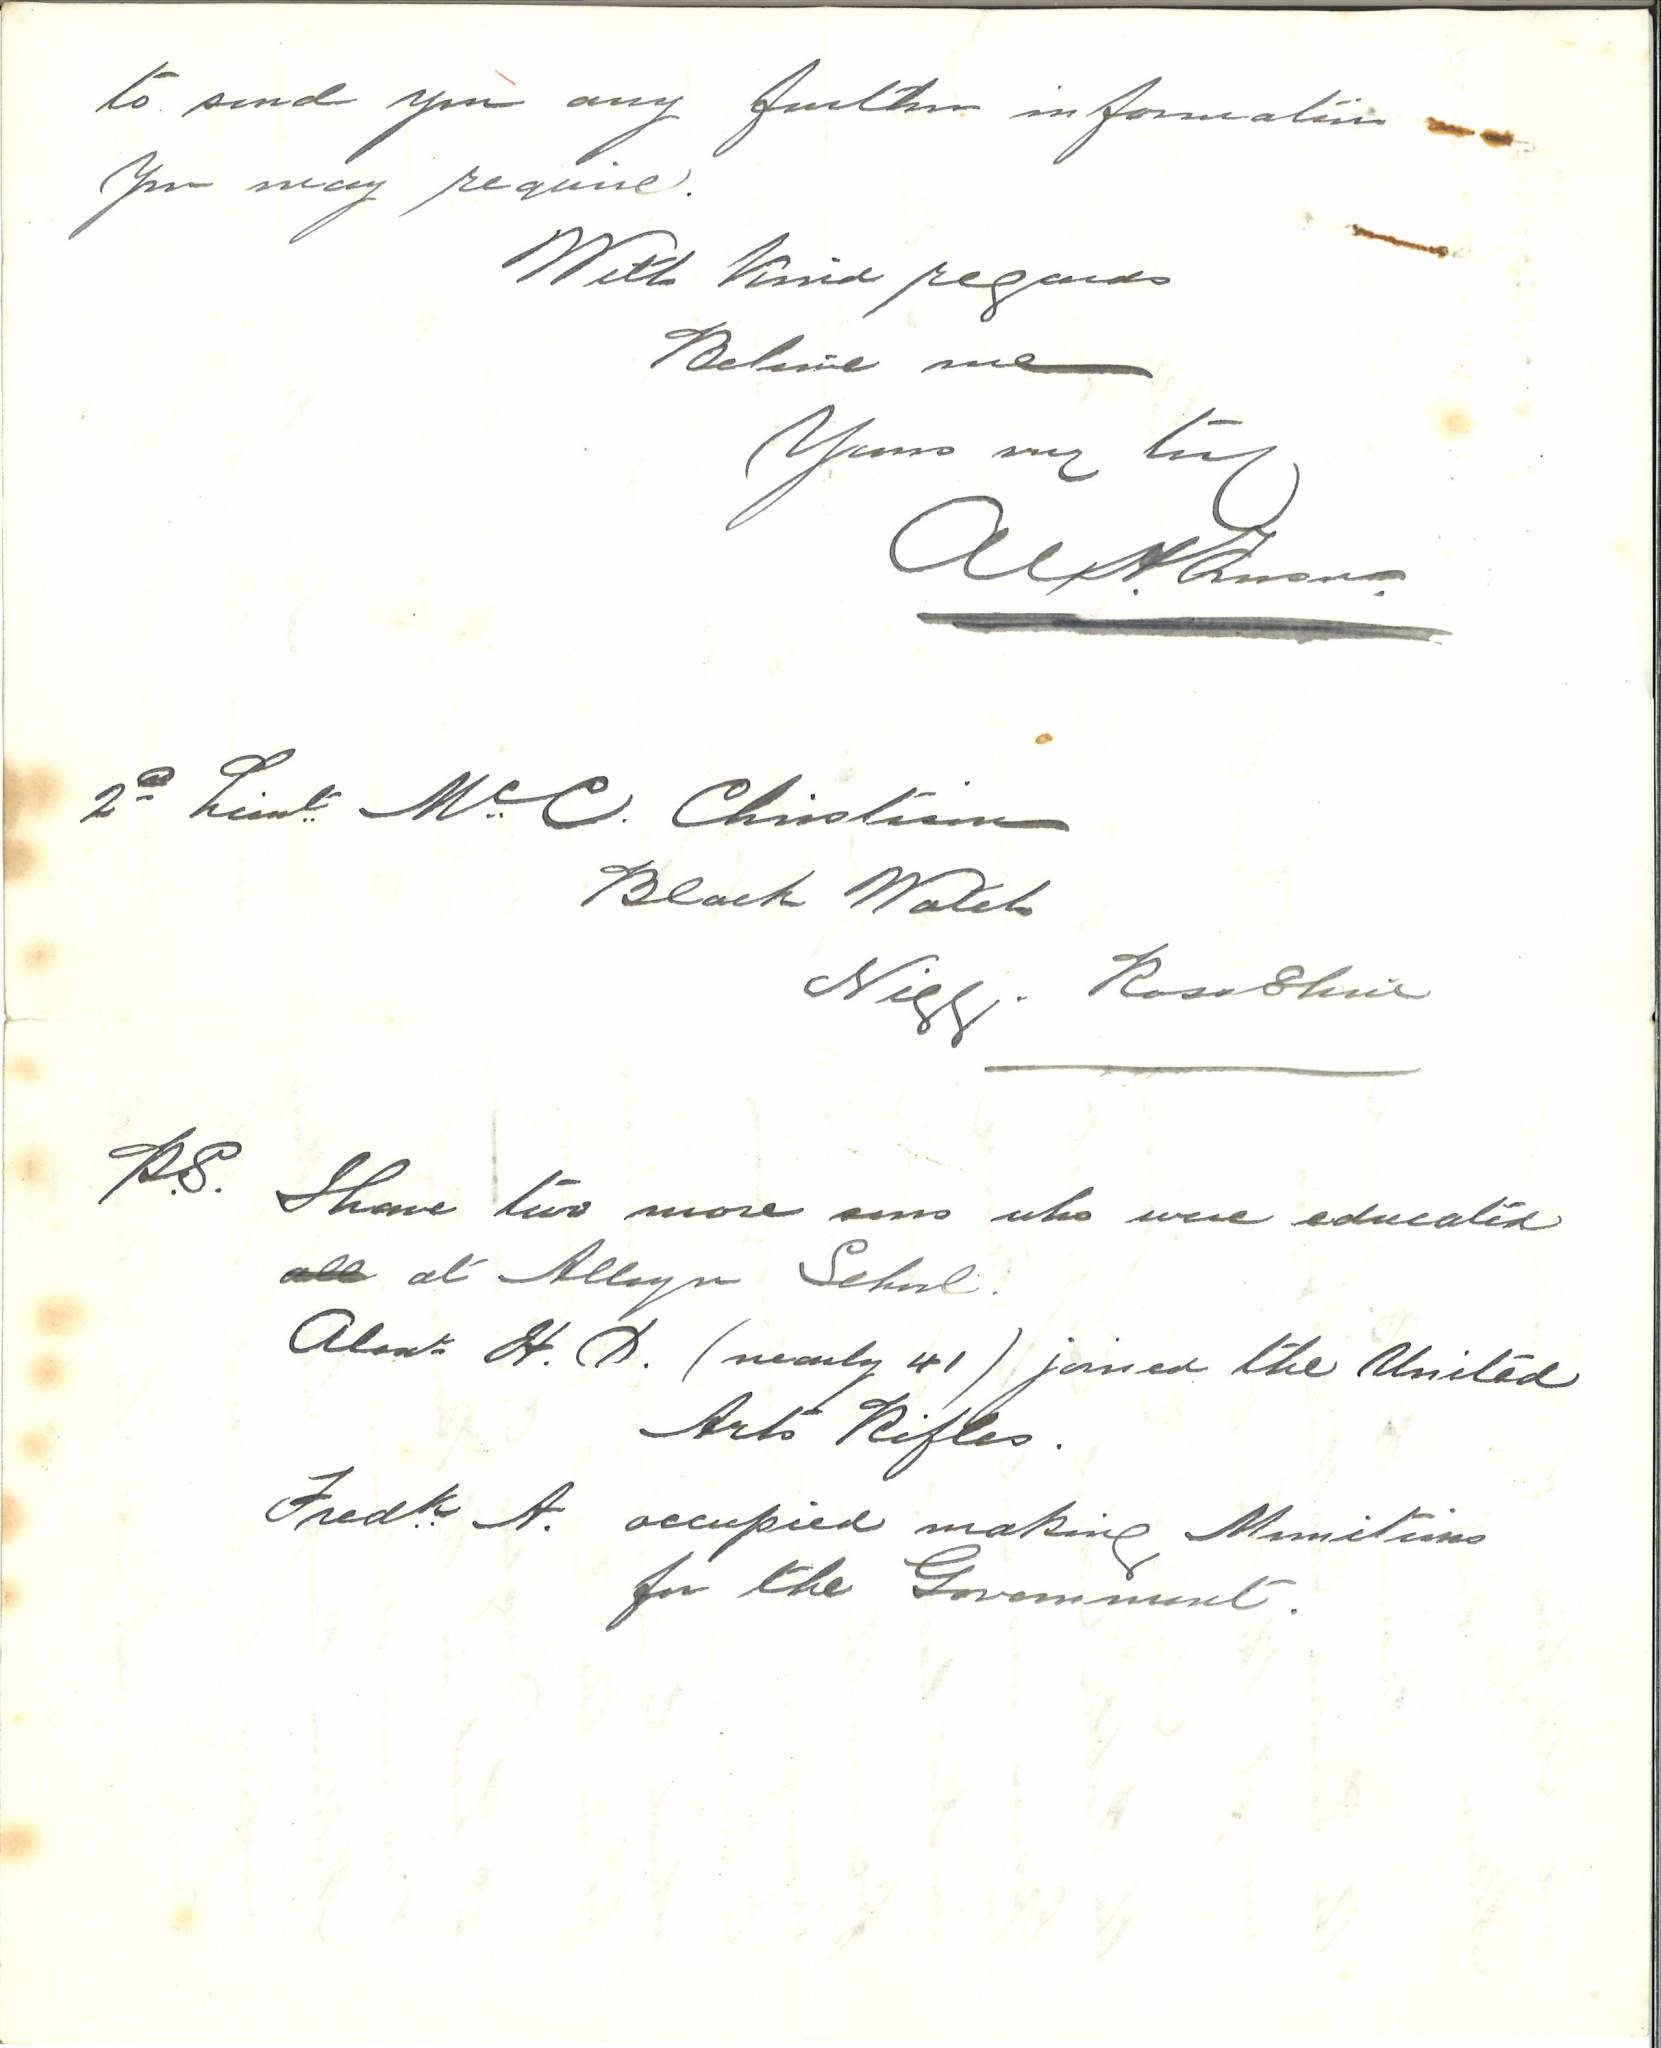 to send you any further information
you may require.
With kind regards
Believe me
Yours very try
A
2nd Lieut. Mc. C. Christison
Black Watch
Nigg. Ross Shire
P.S. I have two more sons who were educated
all at Alleyn School.
Alexr H. D. (nearly 41) joined the United
Arts Rifles.
Fredk. A. occupied making Munitions
for the Government.